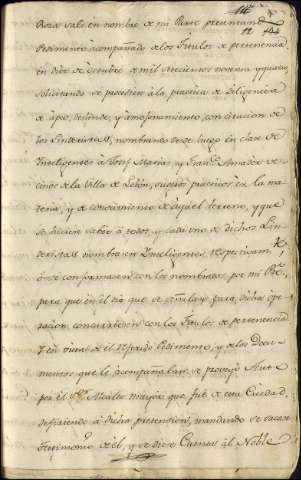 Rosa Vals en nombre de mi Parte presentando
Pedimento acompañado de los Titulos de pertenencia
en diez de Octubre de mil setecientos noventa y quatro
solicitando se procediese à la practica de Diligencia
de apeo, deslinde, y amojonamiento, con citacion de
los Linderistas, nombrando desde luego en clase de
Inteligentes à Josef Maria y Franco Amador ve-
cinos de la Villa de sugetos practicos en la ma-
teria, y de conocimiento de aquel terreno, y que
se hiciese saber à todos, y cada uno de dichos Lin-
deristas nombrasen Inteligentes respectivamte
ò se conformasen con los nombrados por mi Pte
para que en el dia que se señalase para dicha ope-
racion concurriesen con los Titulos de pertenencia
Y en vista de el referido Pedimento, y de los Docu-
mentos que le acompañaban se proveyò Auto
por el Sor Alcalde mayor que fuè de esta Ciudad,
defiriendo à dicha pretension, mandando se sacase
Testimonio de èl, y se diese Cuenta al Noble